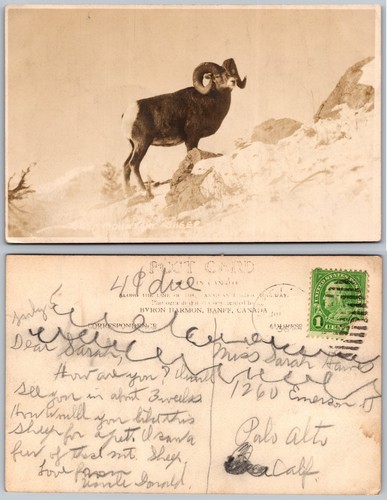 POST CARD
4¢ due
CANADA
ALONG THE LINE OF THE
BYRON HARMON, BANFF, CANADA
CORRESPONDENCE
UNITED STATES
1 CENT
Dear Sarah,
How are you? I will
see you in about 3 weeks
How would you like this
sheep for a pet. I saw a
few of these Mt. Sheep
Love from
Uncle Donald.
Miss Sarah
1260 Emerson
Palo Alto
Calif.